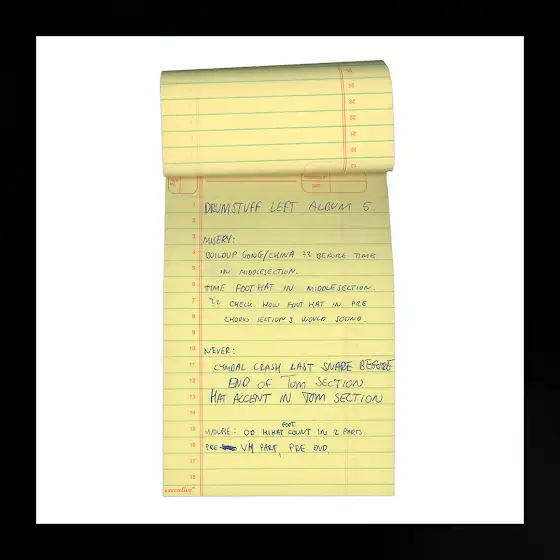 DRUMSTUFF LEFT ALBUM 5.
MISERY:
BUILDUP GONG/CHINA ?? BEFORE TIME
IN MIDDLESECTION.
TIME FOOT HAT IN MIDDLESECTION.
?? CHECK HOW FOOT HAT IN PRE
CHORUS SECTIONS WOULD SOUND.
NEVER:
CYMBAL CRASH LAST SNARE BEFORE
END OF TOM SECTION.
HAT ACCENT IN TOM SECTION
FOOT
: OD HIHAT COUNT IN 2 PARTS
PRE VH PART, PRE END
executive
1
2
3
4
5
6
7
8
9
10
11
12
13
14
15
16
17
18